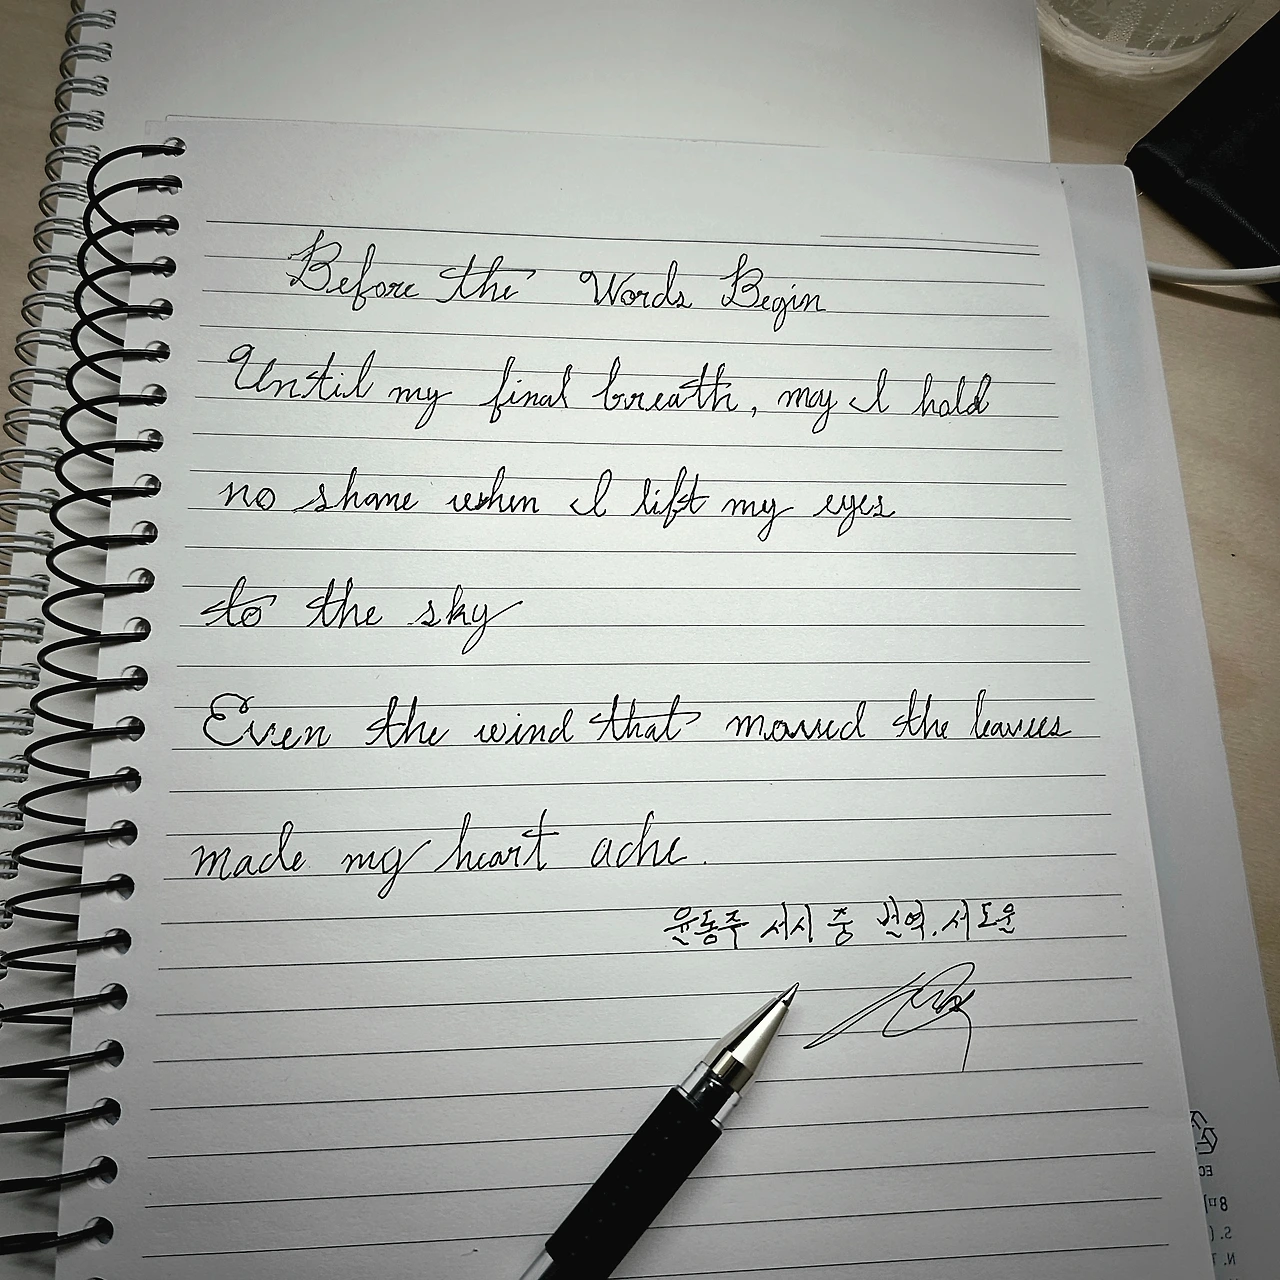 Before the Words Begin
Until my final breath, may I hold
no shame when I lift my eyes
to the sky
Even the wind that moved the leaves
made my heart ache.
윤동주 서시 중 번역.서도운